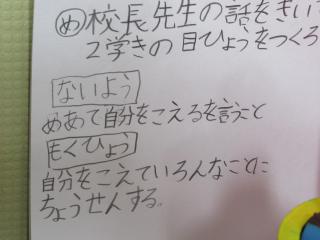 め校長先生の話をきい
2学きの目ひょうをつくろ
ないよう
めあて自分をこえるを言うこと
もくひょう
自分をこえていろんなことに
ちょうせんする。